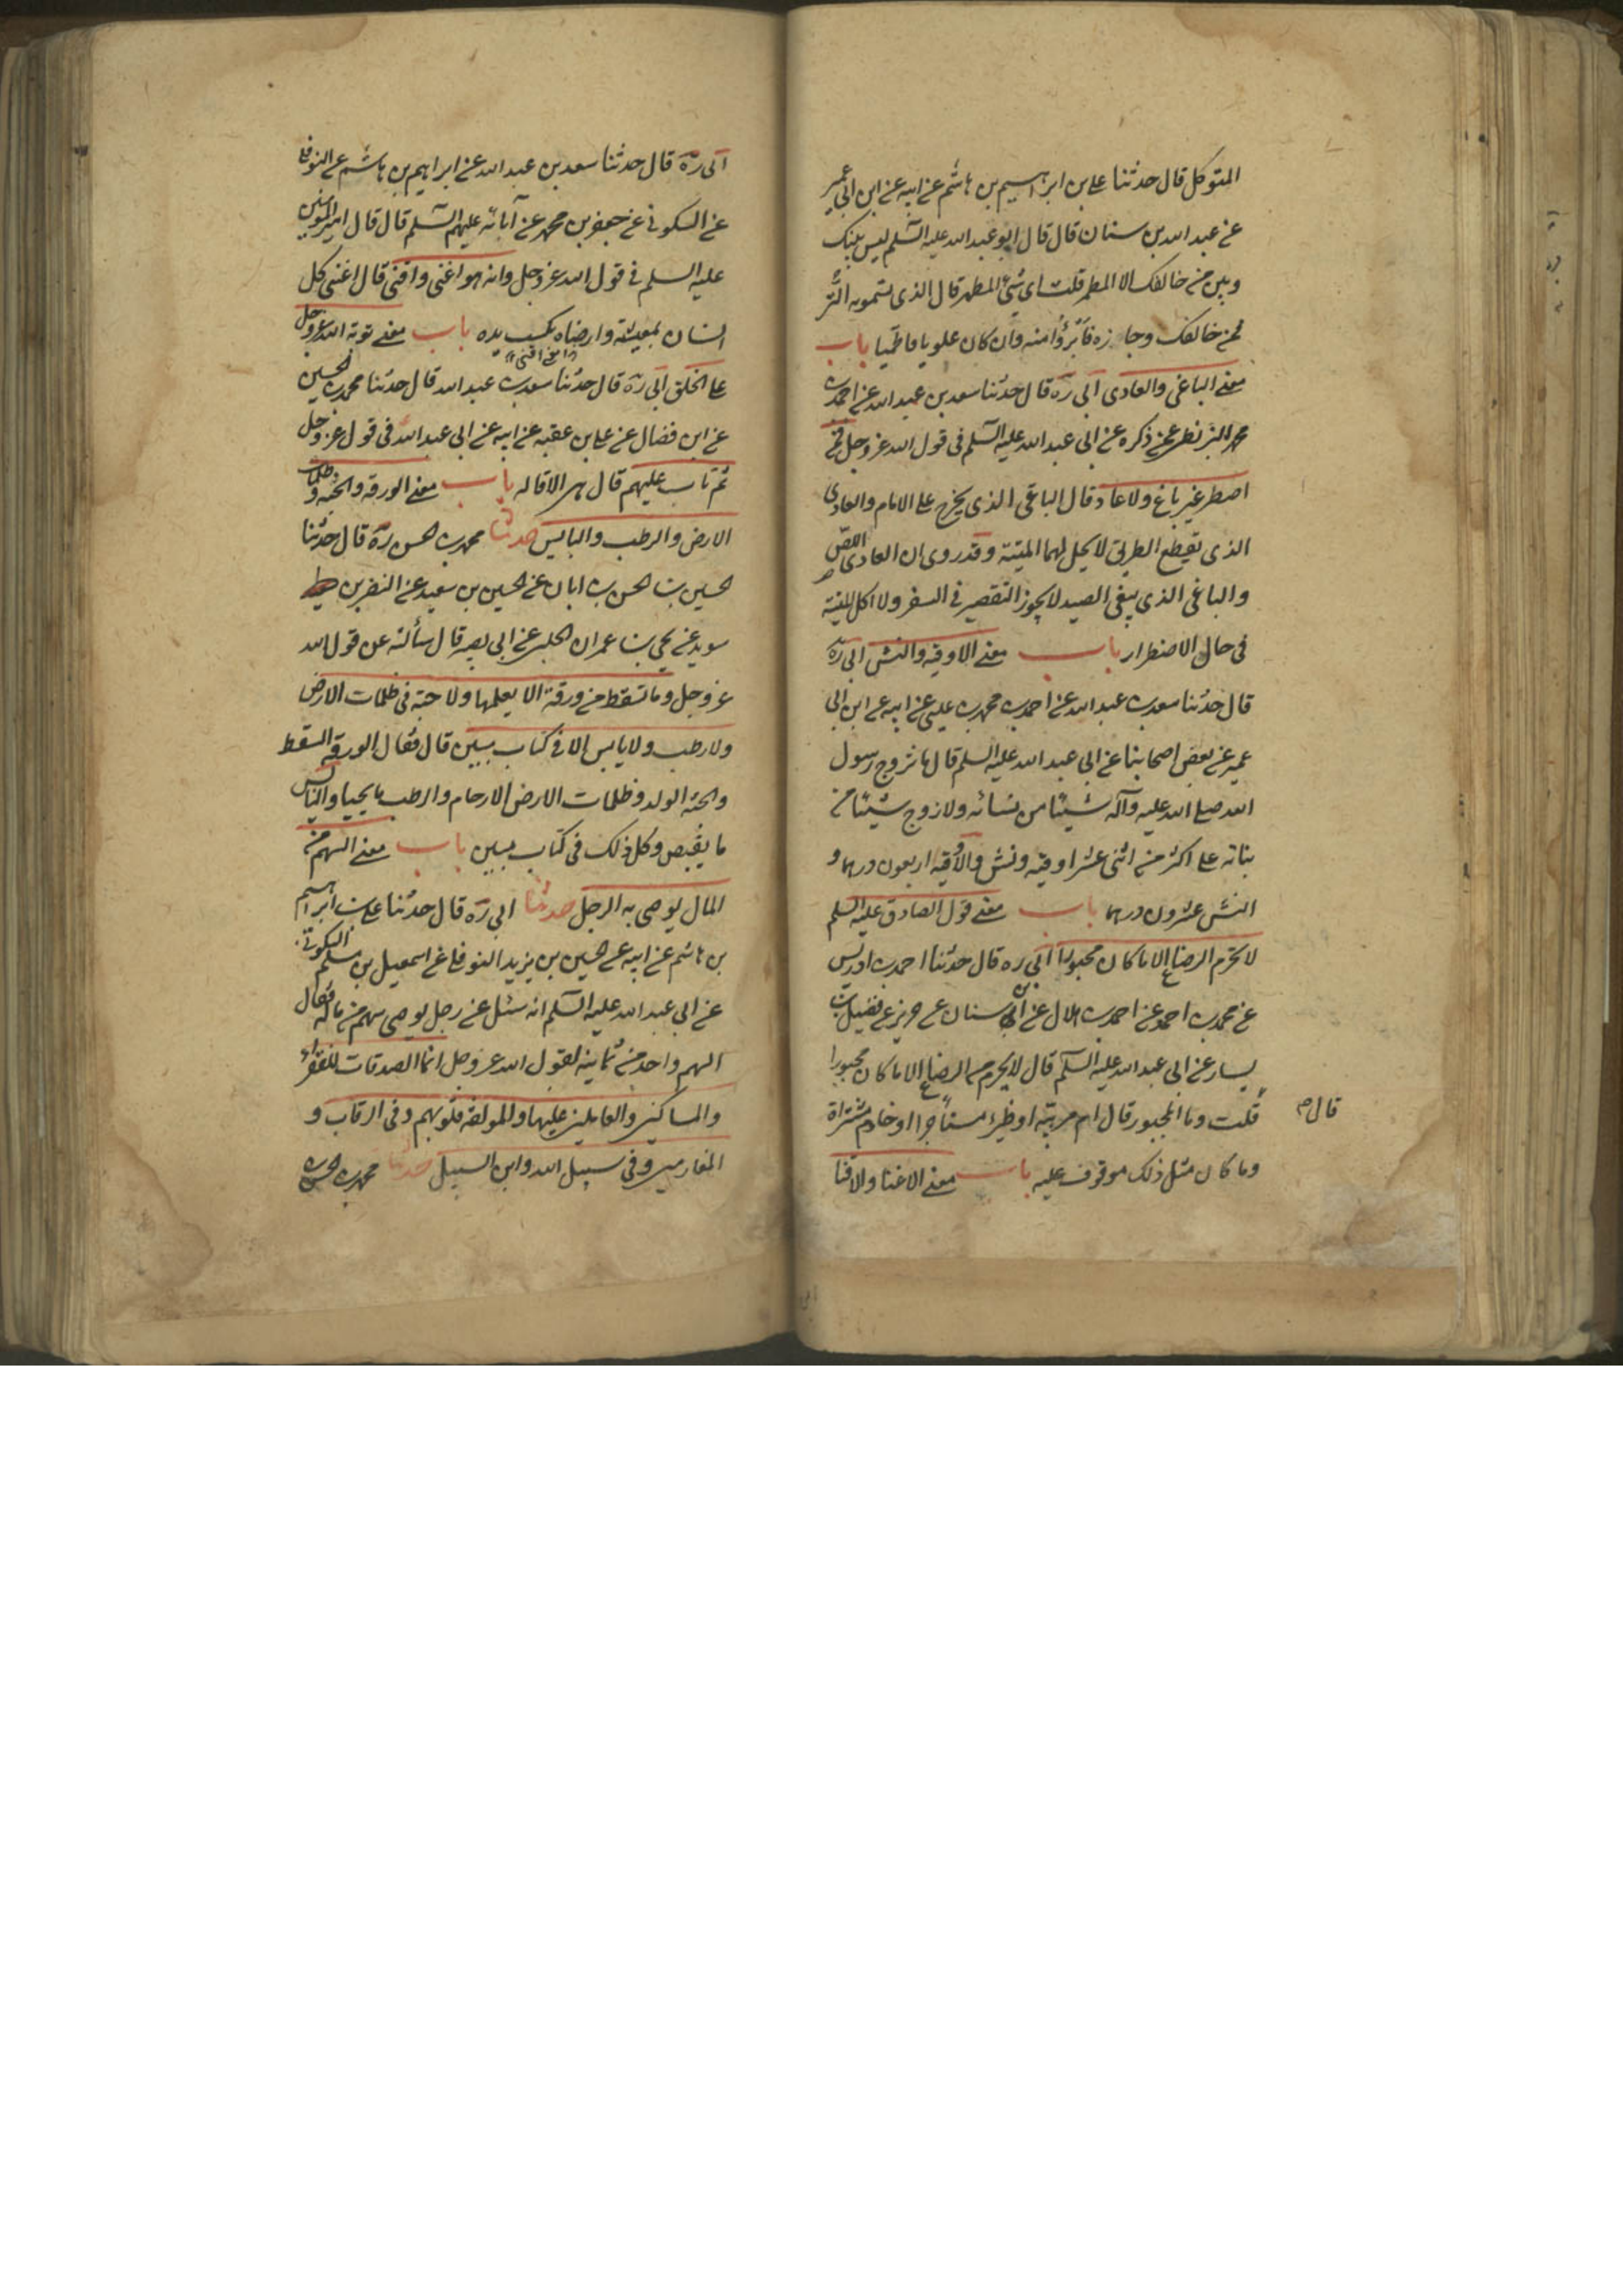 المتوكل قال حدثنا علي بن ابراهيم بن هاشم عن ابيه عن ابن ابي عمير
عن عبد الله بن سنان قال قال ابو عبد الله عليه السلم ليس بينك
وبين من خالفك الا المطمر قلت اى شئ المطمر قال الذى تسمونه التر
فمن خالفك وجازه فابرؤا منه وان كان علويا فاطميا باب
معنى الباغى والعادى ابى ره قال حدثنا سعد بن عبد الله عن احمد بن
محمد البزنطى عمن ذكره عن ابى عبد الله عليه السلم فى قول الله عز وجل فمن
اضطر غير باغ ولا عاد قال الباغى الذى يخرج على الامام والعادى
الذى يقطع الطريق لا يحل لهما الميتة وقد روى ان العادى اللص
والباغى الذى يبغى الصيد لا يجوز التقصير فى السفر ولا اكل الميتة
فى حال الاضطرار باب معنى الاوقيه والنش ابى ره
قال حدثنا سعد بن عبد الله عن احمد بن محمد بن عيسى عن ابيه عن ابن ابى
عمير عن بعض اصحابنا عن ابى عبد الله عليه السلم قال ما تزوج رسول
الله صلى الله عليه وآله شيئا من نسائه ولا زوج شيئا من
بناته على اكثر من اثنى عشر اوقيه ونش والاوقيه اربعون درهما و
النش عشرون درهما باب معنى قول الصادق عليه السلم
لا يحرم الرضاع الا ما كان مجبورا ابى ره قال حدثنا احمد بن ادريس
عن محمد بن احمد عن احمد بن هلال عن ابن سنان عن حريز عن فضيل بن
يسار عن ابى عبد الله عليه السلم قال لا يحرم من الرضاع الا ما كان مجبورا
قلت وما المجبور قال ام مربيه او ظئر مستأجرا او خادم مشتراة
قال
وما كان مثل ذلك موقوف عليه باب معنى الاغنا والاقنا
ابى ره قال حدثنا سعد بن عبد الله عن ابراهيم بن هاشم عن النوفلى
عن السكونى عن جعفر بن محمد عن آبائه عليهم السلم قال قال امير المومنين
عليه السلم فى قول الله عز وجل وانه هو اغنى واقنى قال اغنى كل
انسان بمعيشته وارضاه بكسب يده باب معنى توبة الله عز وجل
على الخلق ابى ره قال حدثنا سعد بن عبد الله قال حدثنا محمد بن الحسين
عن ابن فضال عن على بن عقبه عن ابيه عن ابى عبد الله فى قول عز وجل
ثم تاب عليهم قال هى الاقاله باب معنى الورقه والحبه وظلمات
الارض والرطب واليابس حدثنا محمد بن الحسن ره قال حدثنا
الحسين بن الحسن بن ابان عن الحسين بن سعيد عن النضر بن
سويد عن يحيى بن عمران الحلبى عن ابى بصير قال سألته عن قول الله
عز وجل وما تسقط من ورقة الا يعلمها ولا حبة فى ظلمات الارض
ولا رطب ولا يابس الا فى كتاب مبين قال فقال الورقه السقط
والحبه الولد وظلمات الارض الارحام والرطب ما يحيا واليابس
ما يقبض وكل ذلك فى كتاب مبين باب معنى السهم من
المال يوصى به الرجل حدثنا ابى ره قال حدثنا على بن ابراهيم
بن هاشم عن ابيه عن الحسين بن يزيد النوفلى عن اسمعيل بن مسلم السكونى
عن ابى عبد الله عليه السلم انه سئل عن رجل يوصى بسهم من ماله فقال
السهم واحد من ثمانيه لقول الله عز وجل انما الصدقات للفقراء
والمساكين والعاملين عليها والمولفة قلوبهم وفى الرقاب و
الغارمين وفى سبيل الله وابن السبيل حدثنا محمد بن الحسن